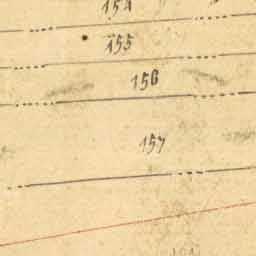 154
155
156
157